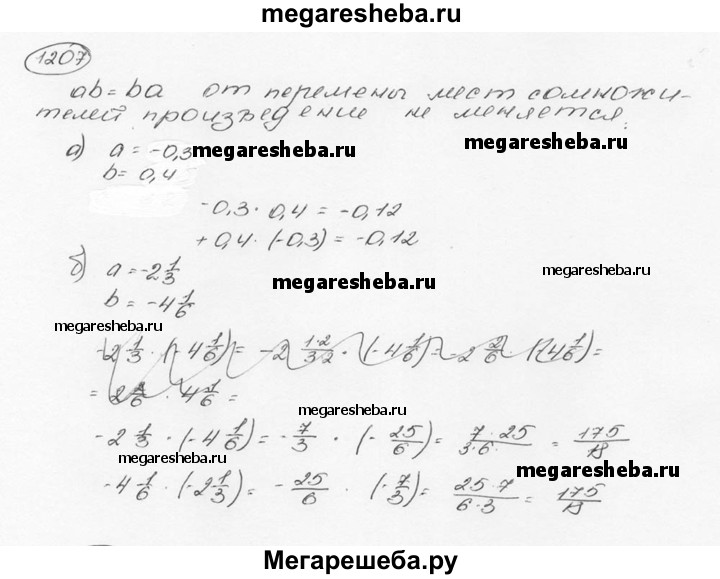 megaresheba.ru
1207
ab = ba от перемены мест сомножи-
телей произведение не меняется.
а) a = -0,3 megaresheba.ru
b = 0,4
-0,3 · 0,4 = -0,12
+0,4 · (-0,3) = -0,12
б) a = -2 1/3
megaresheba.ru megaresheba.ru
b = -4 1/6
megaresheba.ru
-2 1/3 · (-4 1/6) = -2 1·2/3·2 · (-4 1/6) = -2 2/6 · (-4 1/6) =
= 2 2/6 · 4 1/6 =
megaresheba.ru
-2 1/3 · (-4 1/6) = -7/3 · (-25/6) = 7·25/3·6 = 175/18
megaresheba.ru megaresheba.ru
-4 1/6 · (-2 1/3) = -25/6 · (-7/3) = 25·7/6·3 = 175/18
Мегарешеба.ру